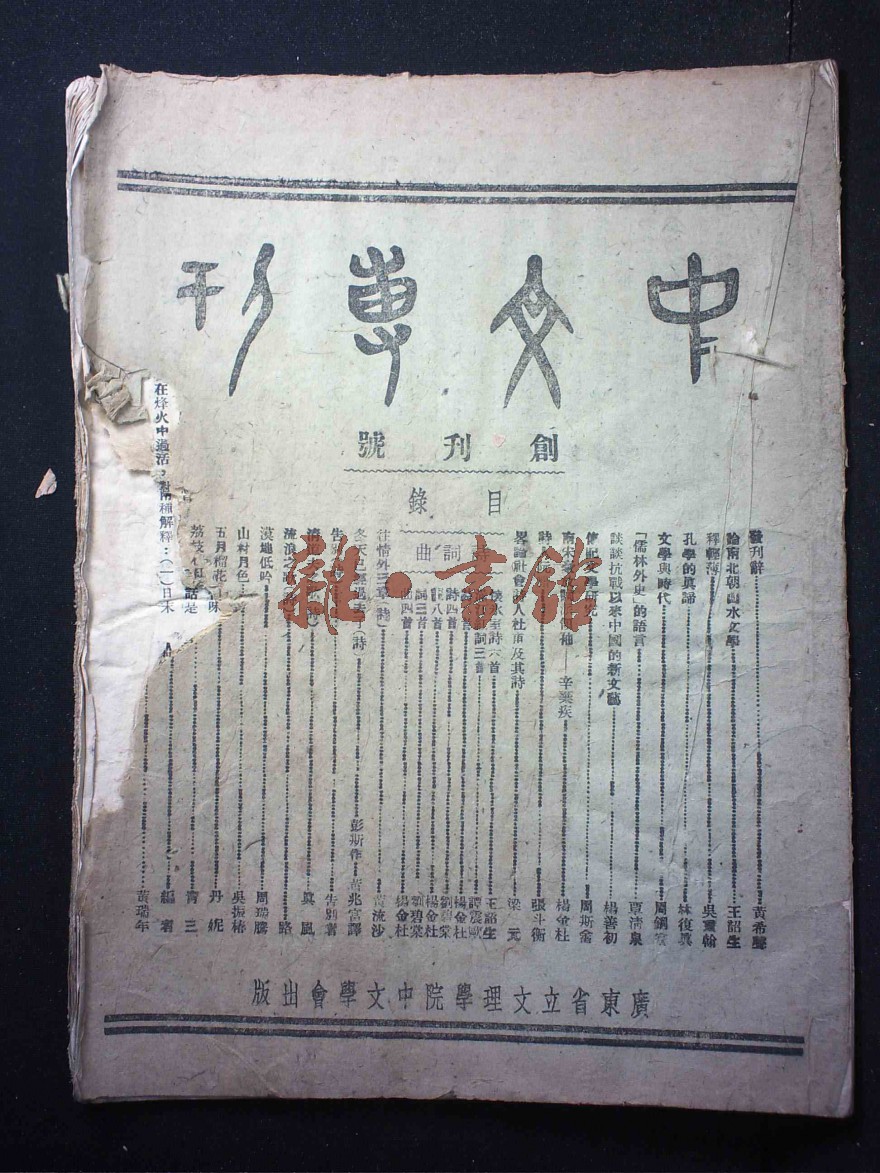 中文專刊
創刊號
目錄
發刊辭 黃希聲
論南北朝山水文學 王韶生
釋輕薄 吳重翰
孔學的眞諦 林復眞
文學與時代 周鋼鳴
「儒林外史」的語言 覃淸泉
談談抗戰以來中國的新文藝 楊善初
傳記文學研究 周斯畬
南宋 辛棄疾 楊金杜
詩 張斗衡
畧論社會詩人杜甫及其詩 梁元
詩詞曲
懷水 詩六首 王韶生
詞三首 譚震歐
楊金杜
詩四首 劉碧棠
八首 楊金杜
詞三首 劉碧棠
曲四首 楊金杜
往情外三章(詩) 黃流沙
冬天已經過去了(詩) 彭斯作 黃兆富譯
告別 告別者
淸道夫 (詩) 眞風
流浪之歌 路
漠地低吟 周瑞騰
山村月色 吳振椿
五月榴花 丹妮
荔枝 話是 靑三
編者
黃瑞年
在烽火中過活,對兩種解釋:(一)日木
廣東省立文理學院中文學會出版
雜·書館